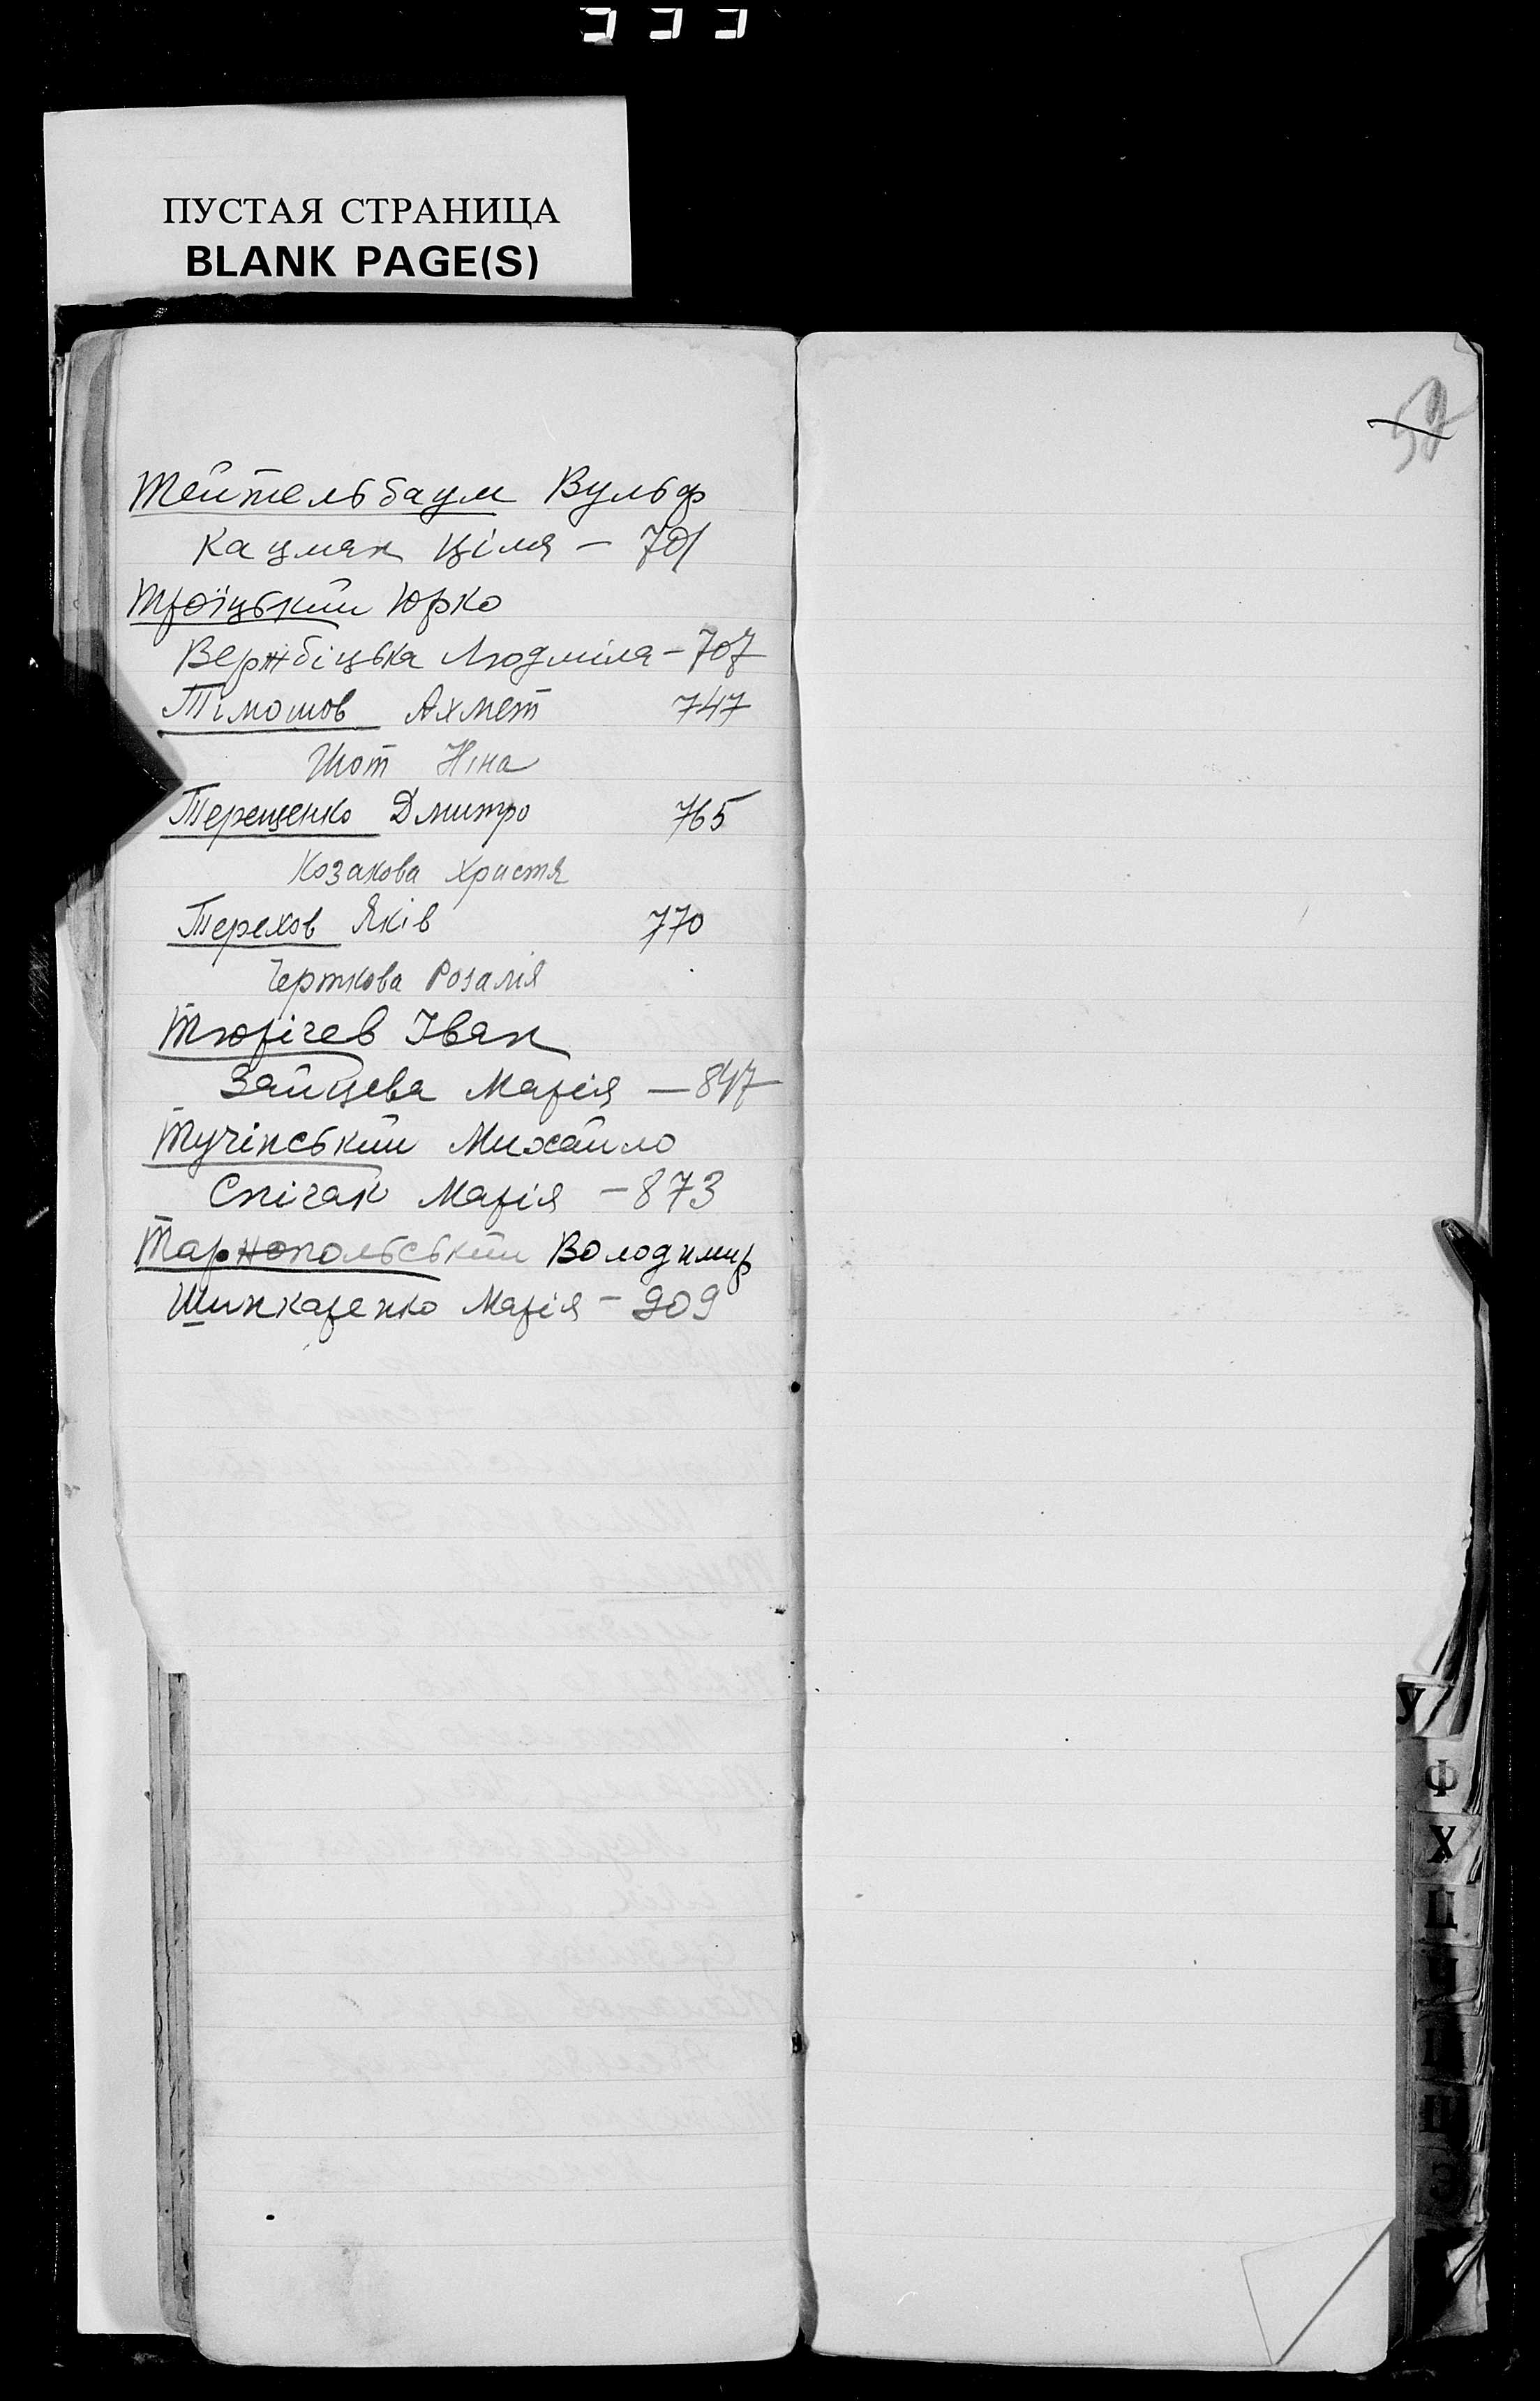 ПУСТАЯ СТРАНИЦА
BLANK PAGE(S)
Тейтельбаум Вульф
Кацман Ціля - 701
Троїцький Юрко
Вержбіцька Людміла - 707
Тімошов Ахмет 747
Шот Ніна
Терещенко Дмитро 765
Козакова Христя
Терехов Яків 770
Черткова Розалія
Тюрічев Іван
Зайцева Марія - 847
Тучінський Михайло
Спічак Марія - 873
Тарнопольський Володимир
Шинкаренко Марія - 909
У
Ф
Х
Ц